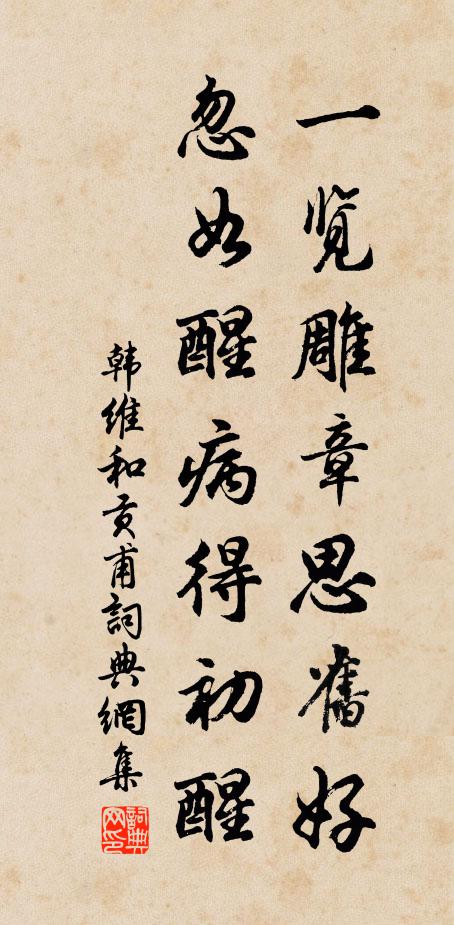 一览雕章思舊好
忽如醒病得初醒
韩维和贡甫詞典網集
詞典网印